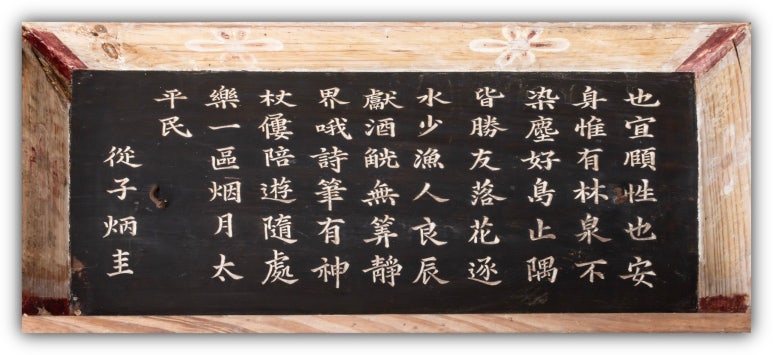 也宜頤性也安
身惟有林泉不
染塵好鳥止隅
皆勝友落花逐
水少漁人良辰
獻酒觥無筭靜
界哦詩筆有神
杖僂陪遊隨處
樂一區烟月太
平民
從子炳圭